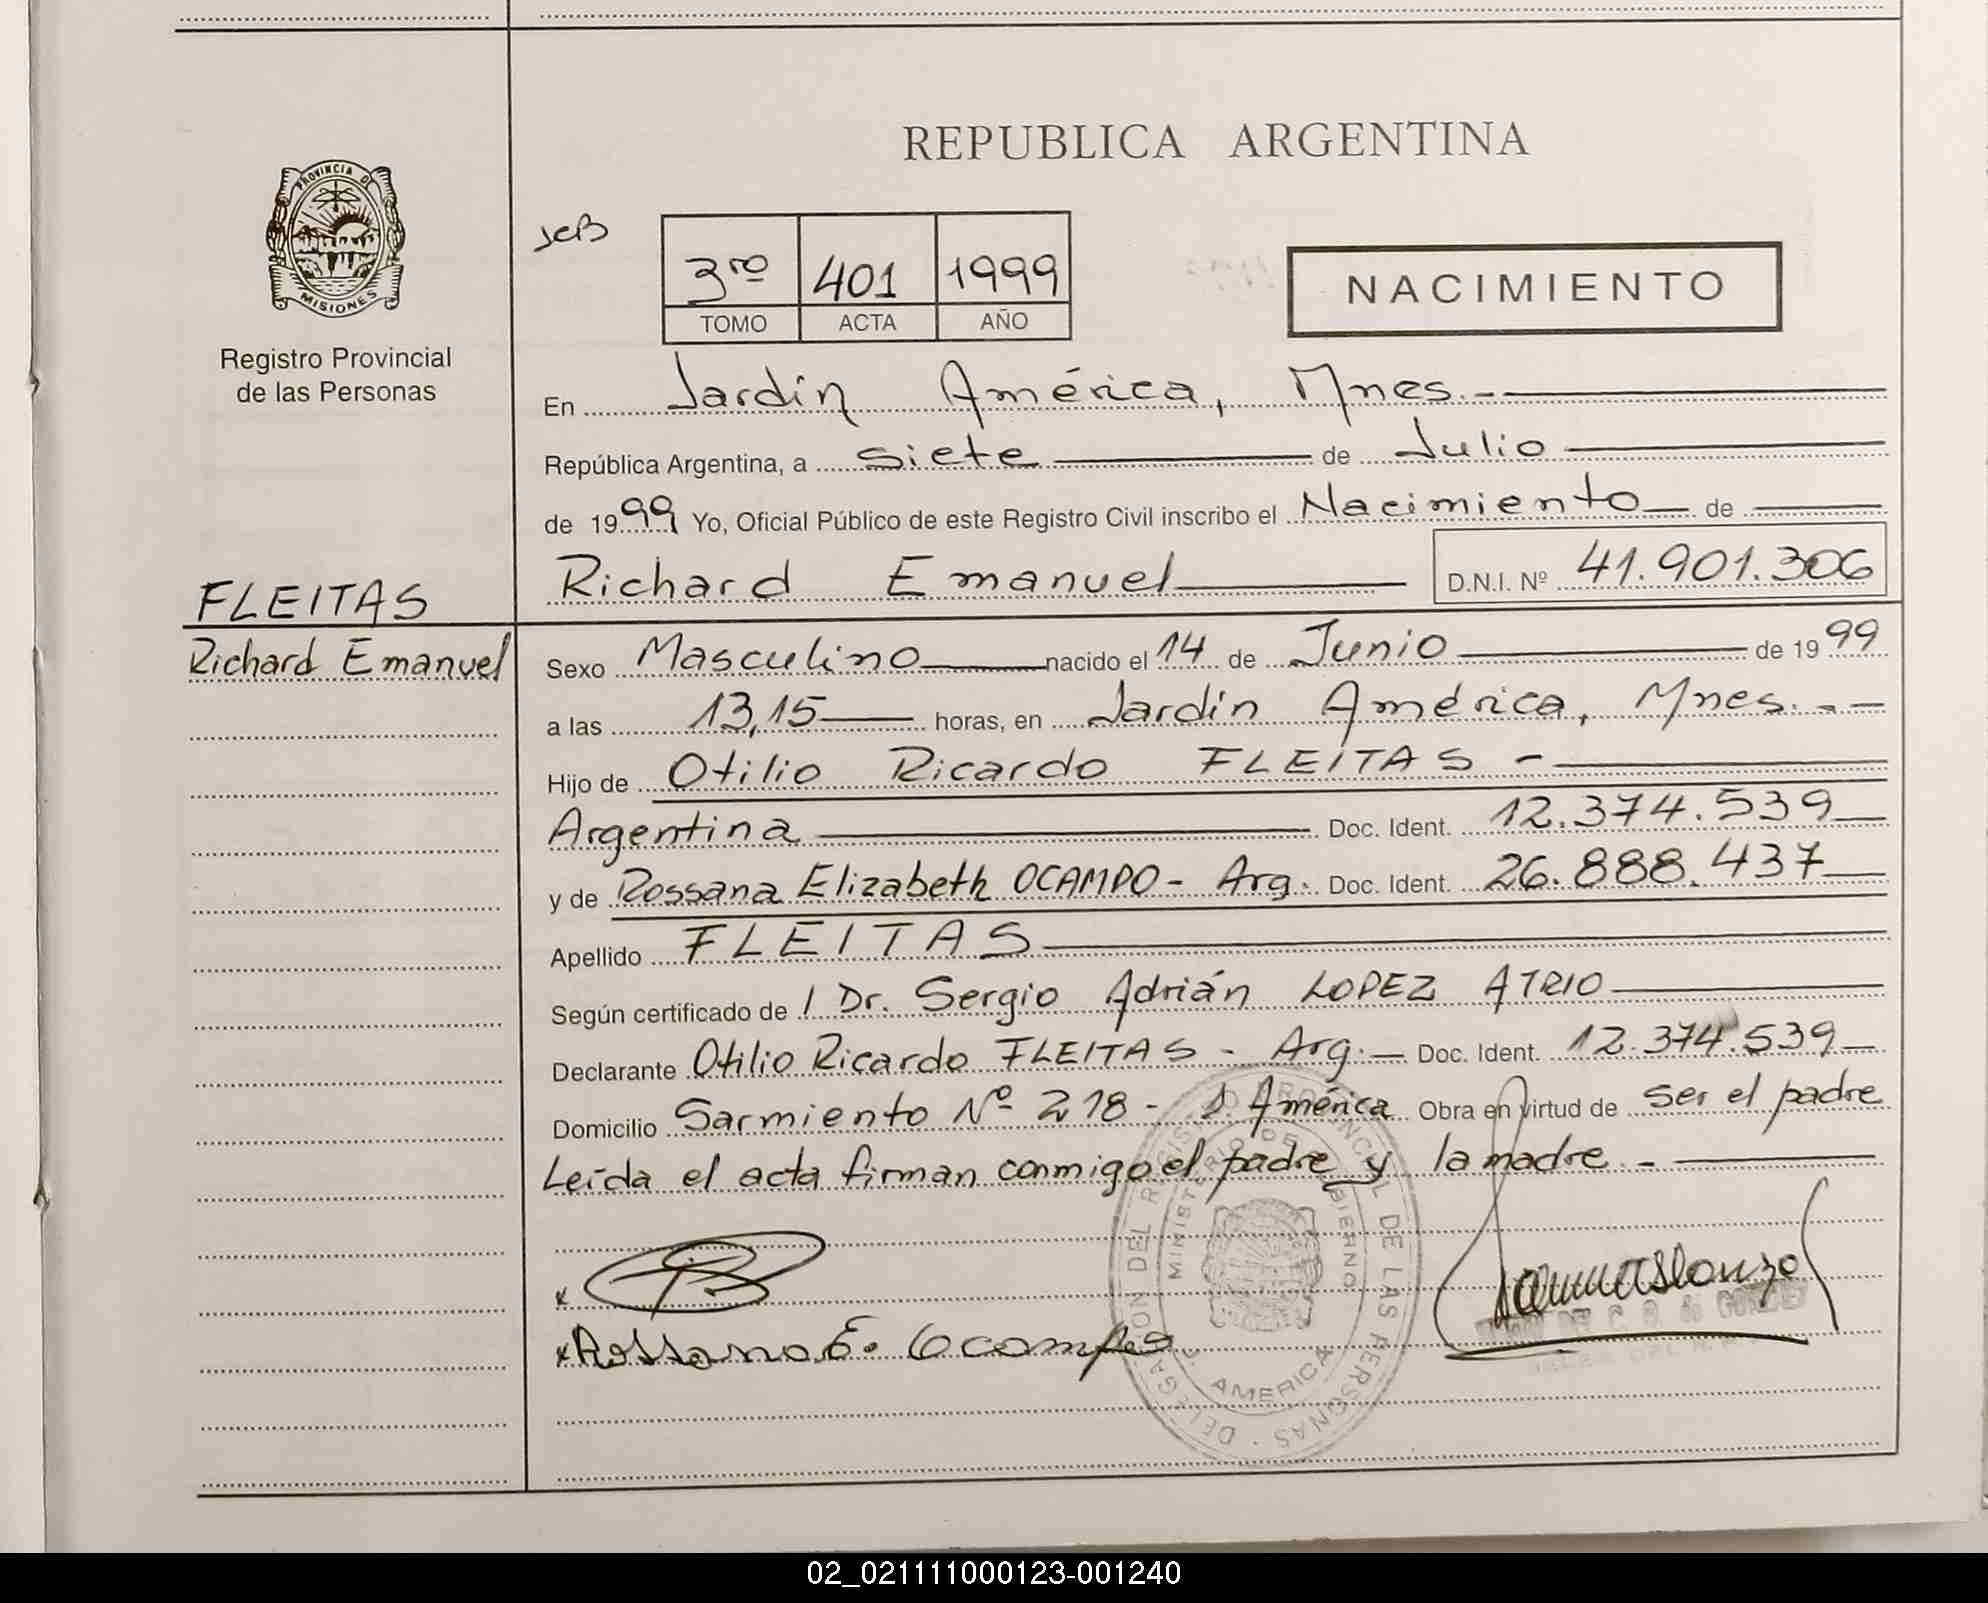 REPUBLICA ARGENTINA
PROVINCIA DE
MISIONES
Registro Provincial
de las Personas
3ro 401 1999
TOMO ACTA AÑO
NACIMIENTO
En Jardín América, Mnes.-
República Argentina, a siete de Julio
de 1999 Yo, Oficial Público de este Registro Civil inscribo el Nacimiento de
Richard Emanuel D.N.I. Nº 41.901.306
FLEITAS
Richard Emanuel
Sexo Masculino nacido el 14 de Junio de 1999
a las 13,15 horas, en Jardín América, Mnes.-
Hijo de Otilio Ricardo FLEITAS -
Argentina Doc. Ident. 12.374.539
y de Rossana Elizabeth OCAMPO - Arg. Doc. Ident. 26.888.437
Apellido FLEITAS
Según certificado de / Dr. Sergio Adrián LOPEZ ATRIO
Declarante Otilio Ricardo FLEITAS - Arg. Doc. Ident. 12.374.539
Domicilio Sarmiento Nº 218 - J. América Obra en virtud de ser el padre
Leída el acta firman conmigo el padre y la madre.-
x
x Rossana E. Ocampo
DELEGACION DEL REGISTRO PROVINCIAL DE LAS PERSONAS
MINISTERIO DE GOBIERNO
J. AMERICA
02_021111000123-001240